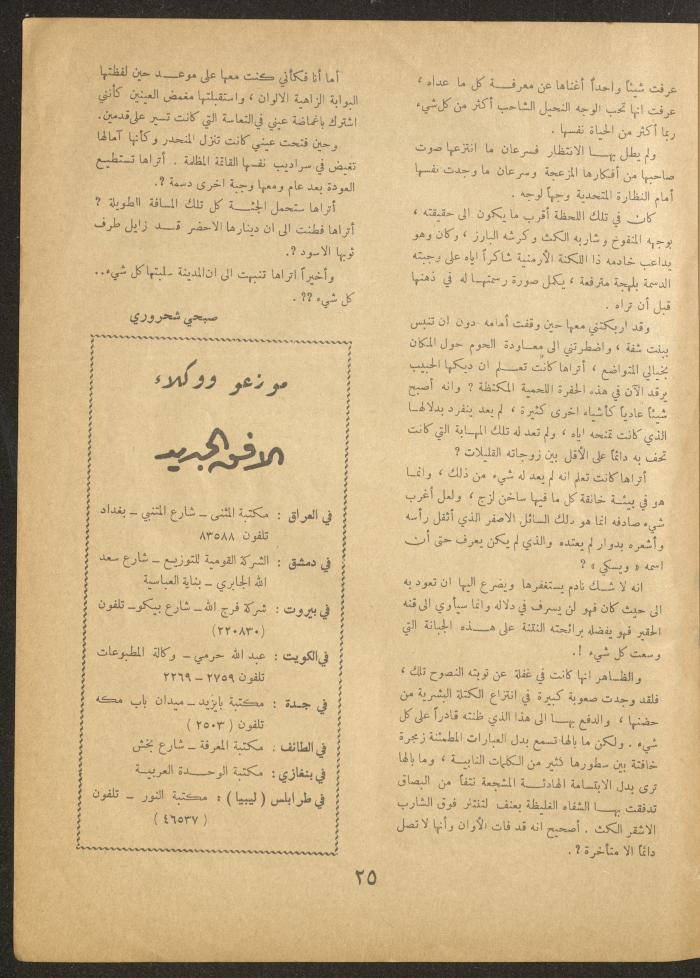 عرفت شيئاً واحداً أغناها عن معرفة كل ما عداه ،
عرفت انها تحب الوجه النحيل الشاحب أكثر من كل شيء
ربما أكثر من الحياة نفسها .
ولم يطل بها الانتظار فسرعان ما انتزعها صوت
صاحبها من أفكارها المزعجة وسرعان ما وجدت نفسها
أمام النظارة المتحدية وجهاً لوجه .
كان في تلك اللحظة أقرب ما يكون الى حقيقته ،
بوجهه المنفوخ وشاربه الكث وكرشه البارز ، وكان وهو
يداعب خادمه ذا اللكنة الأرمنية شاكراً اياه على وجبته
الدسمة بلهجة مترفعة ، يكمل صورة رسمتها له في ذهنها
قبل أن تراه .
وقد اربكتني معها حين وقفت أمامه دون ان تنبس
ببنت شفة ، واضطرتني الى معاودة الحوم حول المكان
بخيالي المتواضع ، أتراها كانت تعلم ان ديكها الحبيب
يرقد الآن في هذه الحفرة اللحمية المكتظة ؟ وانه أصبح
شيئاً عادياً كأشياء اخرى كثيرة ، لم يعد ينفرد بدلالها
الذي كانت تمنحه اياه ، ولم تعد له تلك المهابة التي كانت
تحف به دائماً على الأقل بين زوجاته القليلات ؟
أتراها كانت تعلم انه لم يعد له شيء من ذلك ، وانما
هو في بيئة خانقة كل ما فيها ساخن لزج ، ولعل أغرب
شيء صادفه انما هو ذلك السائل الاصفر الذي أثقل رأسه
وأشعره بدوار لم يعتده والذي لم يكن يعرف حتى أن
اسمه « ويسكي » ؟
انه لا شك نادم يستغفرها ويضرع اليها ان تعود به
الى حيث كان فهو لن يسرف في دلاله وانما سيأوي الى قنه
الحقير فهو يفضله برائحته النتنة على هذه الجبانة التي
وسعت كل شيء !.
والظاهر انها كانت في غفلة عن توبته النصوح تلك ،
فلقد وجدت صعوبة كبيرة في انتزاع الكتلة البشرية من
حضنها ، والدفع بها الى هذا الذي ظنته قادراً على كل
شيء . ولكن ما بالها تسمع بدل العبارات المطمئنة زمجرة
خافتة بين سطورها كثير من الكلمات النابية ، وما بالها
ترى بدل الابتسامة الهادئة المشجعة نتفاً من البصاق
تدفقت بها الشفاه الغليظة بعنف لتتناثر فوق الشارب
الاشقر الكث . أصحيح انه قد فات الأوان وأنها لا تصل
دائماً الا متأخرة ؟ .
أما أنا فكأني كنت معها على موعد حين لفظتها
البوابة الزاهية الالوان ، واستقبلتها مغمض العينين كأنني
اشترك باغماضة عيني في التعاسة التي كانت تسير على قدمين .
وحين فتحت عيني كانت تنزل المنحدر وكأنها آمالها
تغيض في سراديب نفسها القاتمة المظلمة . أتراها تستطيع
العودة بعد عام ومعها وجبة اخرى دسمة ؟.
أتراها ستحمل الجثة كل تلك المسافة الطويلة ؟
أتراها فطنت الى ان دينارها الاخضر قد زايل طرف
ثوبها الاسود ؟.
وأخيراً اتراها تنبهت الى ان المدينة سلبتها كل شيء ..
كل شيء ؟؟ .
صبحي شحروري
موزعو ووكلاء
الافق الجديد
في العراق : مكتبة المثنى – شارع المتنبي – بغداد
تلفون ٨٣٥٨٨
في دمشق : الشركة القومية للتوزيع – شارع سعد
الله الجابري – بناية العباسية
في بيروت : شركة فرج الله – شارع بيكو – تلفون
(٢٢٠٨٣٠)
في الكويت : عبد الله حرمي – وكالة المطبوعات
تلفون ٢٧٥٩ – ٢٢٦٩
في جدة : مكتبة بايزيد – ميدان باب مكه
تلفون ( ٢٥٠٣ )
في الطائف . مكتبة المعرفة – شارع بخش
في بنغازي : مكتبة الوحدة العربية
في طرابلس ( ليبيا ) : مكتبة النور – تلفون
( ٤٦٥٣٧ )
٢٥